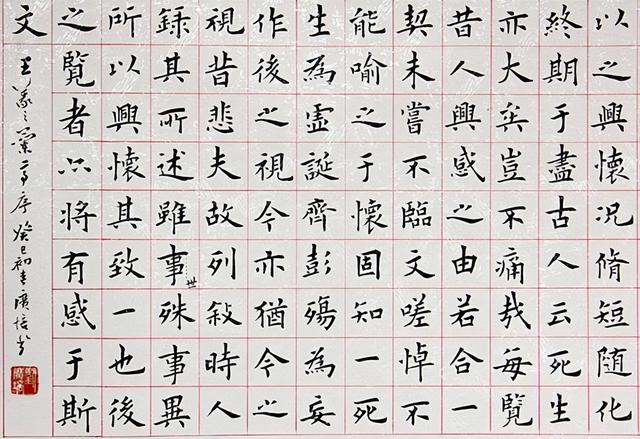 以之興懷況脩短随化
終期于盡古人云死生
亦大矣豈不痛哉每覽
昔人興感之由若合一
契未嘗不臨文嗟悼不
能喻之于懷固知一死
生為虛誕齊彭殤為妄
作後之視今亦猶今之
視昔悲夫故列敘時人
錄其所述雖世事殊事異
所以興懷其致一也後
之覽者亦將有感于斯
文
王羲之蘭亭序癸巳初春廣培書